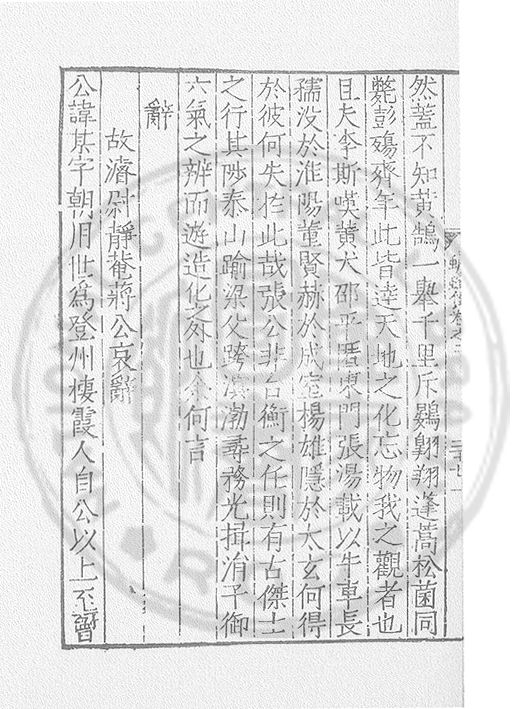 然蓋不知黃鵠一舉千里斥鷃翺翔蓬蒿松菌同
斃彭殤齊年此皆達天地之化忘物我之觀者也
且夫李斯嘆黃犬邵平匿東門張湯載以牛車長
孺没於淮陽董賢赫於成室楊雄隱於太玄何得
於彼何失於此哉張公非台衡之任則有古傑士
之行其陟泰山踰梁父跨溟渤尋務光揖涓子御
六氣之辨而遊造化之外也余何言
辭
故濬尉靜菴蔣公哀辭
公諱某字朝用世為登州棲霞人自公以上至曾
卷之三
三十七